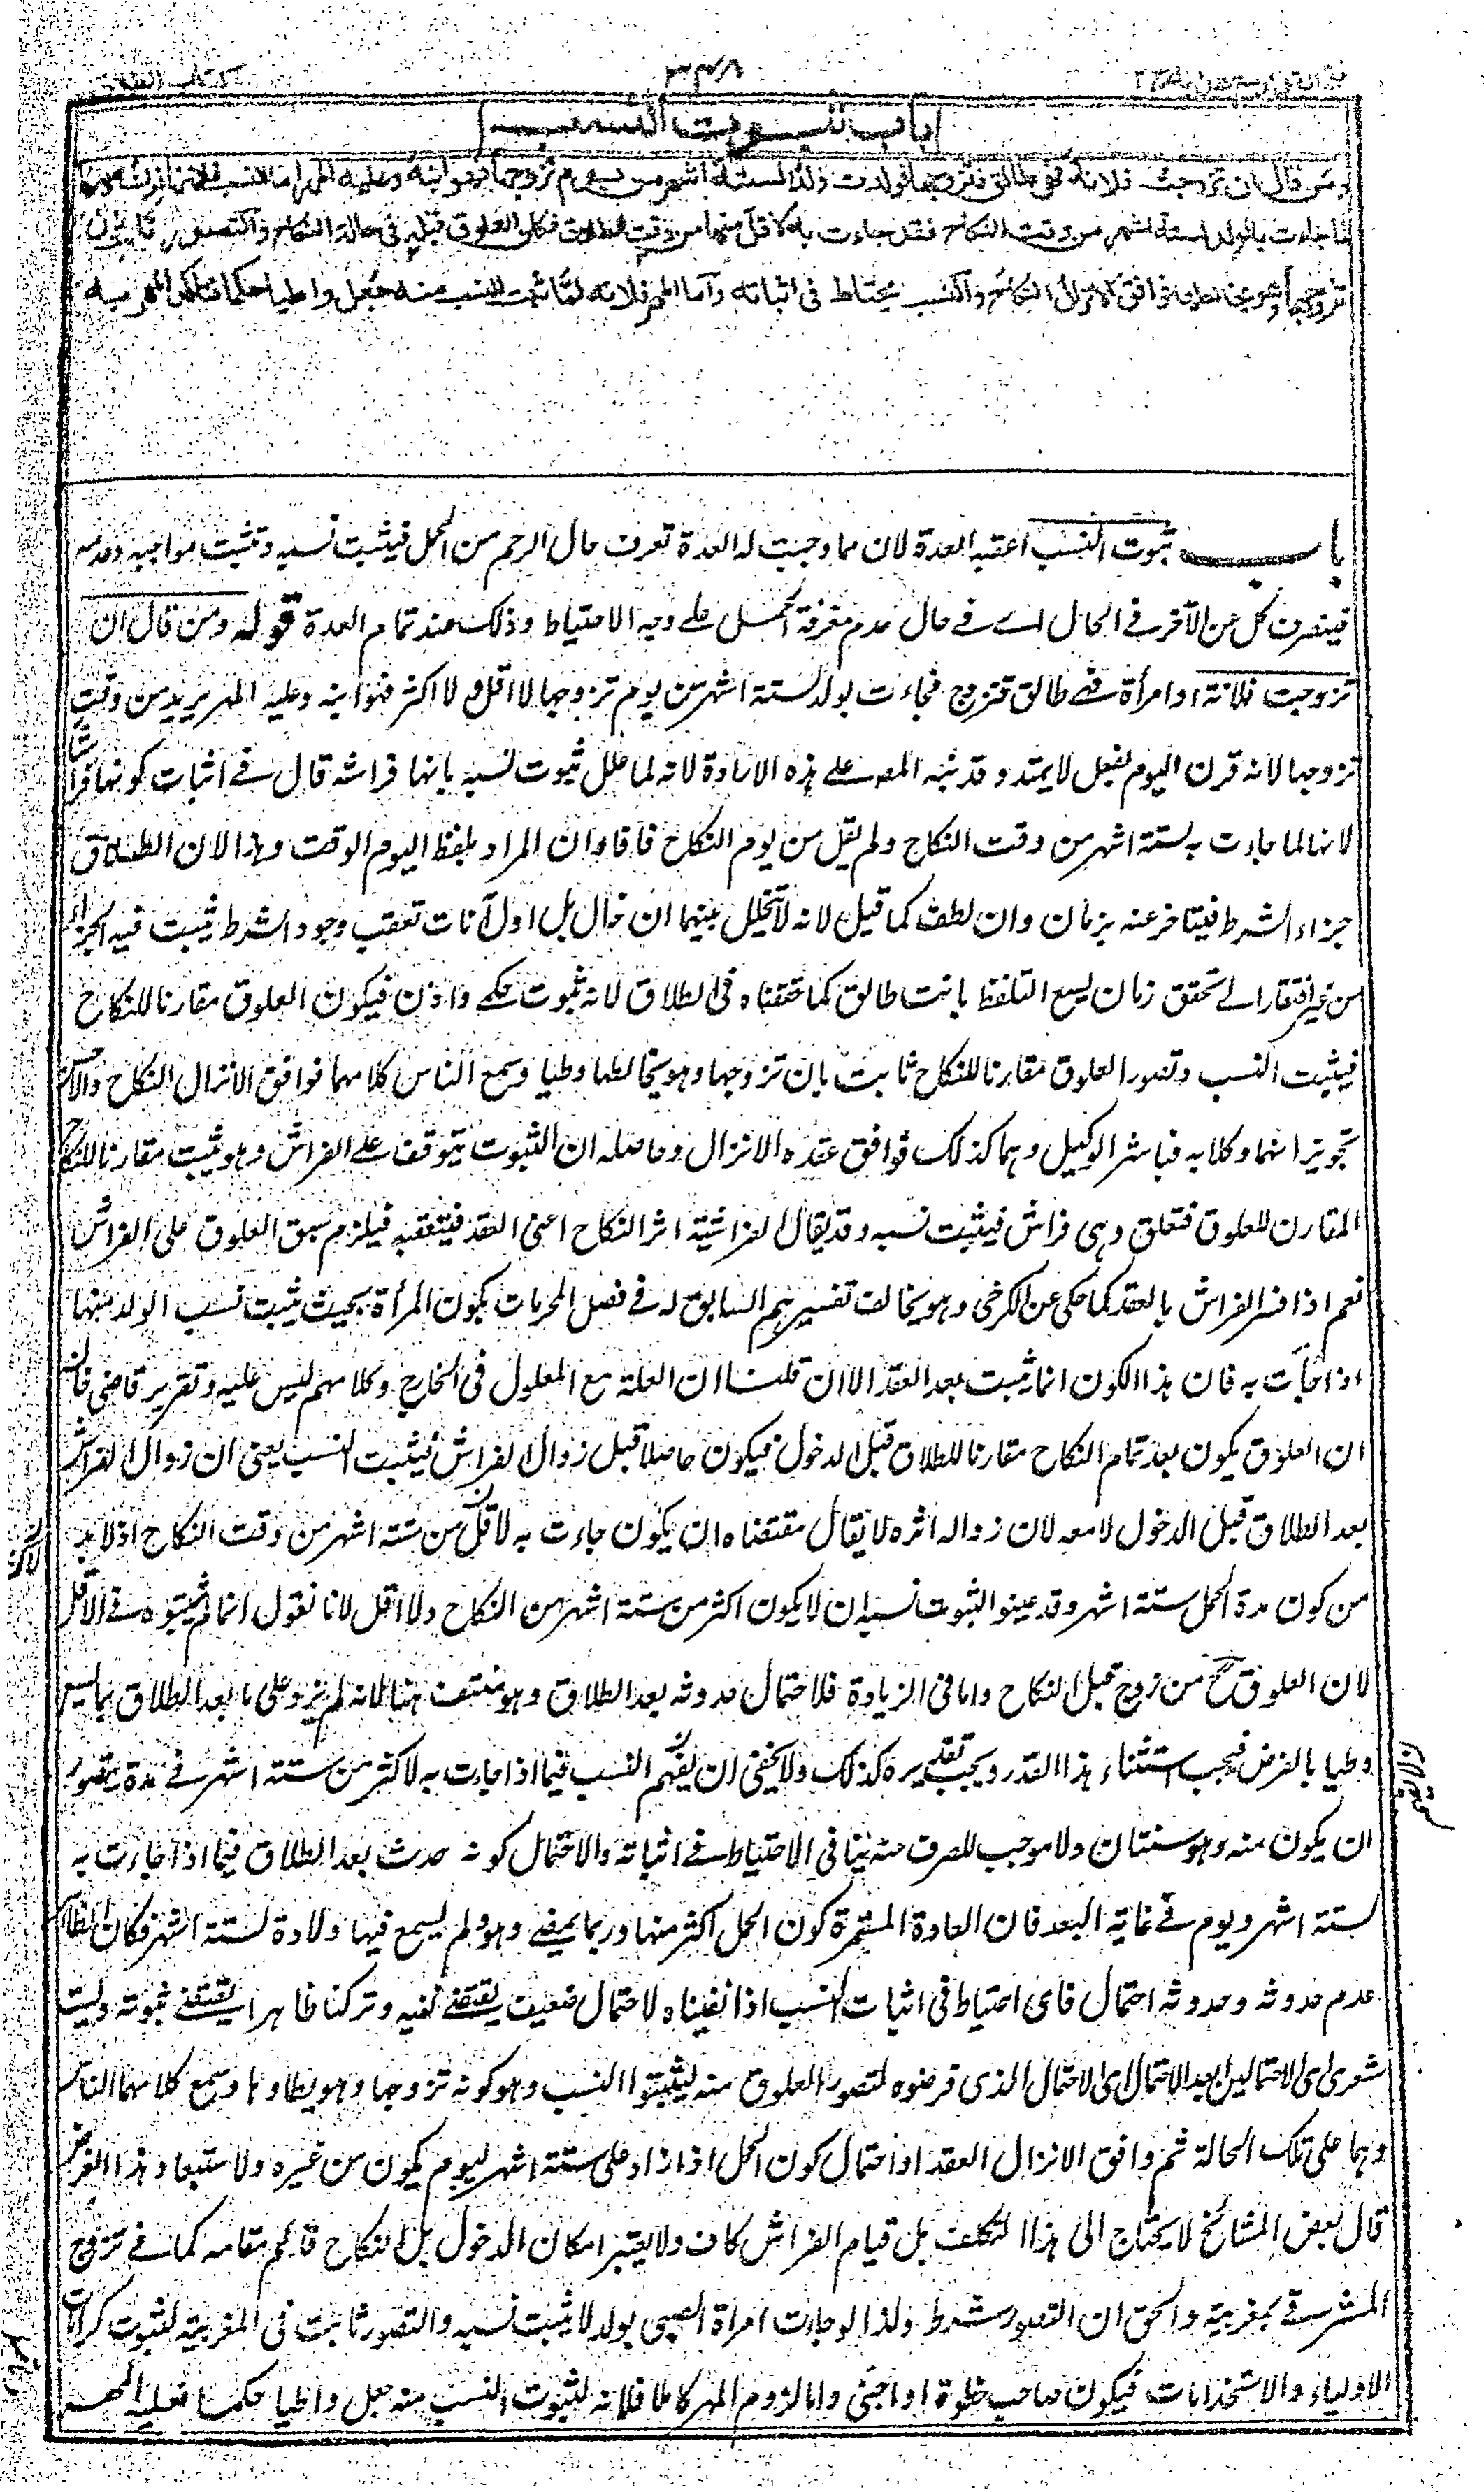 ٣٤٨
باب ثبوت النسب
ومن قال ان تزوجت فلانة فهي طالق فتزوجها فولدت ولدا لستة اشهر من يوم تزوجها فهو ابنه وعليه المهر اما النسب فلانها فراشه لانها
لما جاءت بالولد لستة اشهر من وقت النكاح فقد جاءت به لاقل منها من وقت الطلاق فكان العلوق قبله في حالة النكاح والتصور ثابت بان
تزوجها وهو يخالطها فوافق الانزال النكاح والنسب يحتاط في اثباته واما المهر فلانه لما ثبت النسب منه جعل واطيا حكما فتاكد المهر به
باب ثبوت النسب اعقبه العدة لان مما وجبت له العدة تعرف حال الرحم من الحمل فيثبت نسبه وتثبت مواجبه وعدمه
فينصرف كل عن الآخر في الحال اے في حال عدم معرفة الحمل على وجه الاحتياط وذلك عند تمام العدة قوله ومن قال ان
تزوجت فلانة او امرأة فهي طالق فتزوج فجاءت بولد لستة اشهر من يوم تزوجها لا اقل ولا اكثر فهو ابنه وعليه المهر يريد من وقت
تزوجها لانه قرن اليوم بفعل لا يمتد وقد نبه المص على هذه الارادة لانه لما علل ثبوت نسبه بانها فراشه قال في اثبات كونها فراشا
لانها لما جاءت به لستة اشهر من وقت النكاح ولم يقل من يوم النكاح فافاد ان المراد بلفظ اليوم الوقت وهذا لان الطلاق
جزاء الشرط فيتاخر عنه بزمان وان لطف كما قيل لانه لا يتخلل بينهما ان خال بل اول آنات تعقب وجود الشرط يثبت فيه الجزاء
من غير افتقار الى تحقق زمان يسع التلفظ بانت طالق كما حققناه في الطلاق لانه ثبوت حكمي واذن فيكون العلوق مقارنا للنكاح
فيثبت النسب وتصور العلوق مقارنا للنكاح ثابت بان تزوجها وهو يخالطها وطيا وسمع الناس كلامهما فوافق الانزال النكاح والاحسن
تجويز انهما وكلا به فباشر الوكيل وهما كذلك فوافق عقده الانزال وحاصله ان الثبوت يتوقف على الفراش وهو يثبت مقارنا للنكاح
المقارن للعلوق فتعلق وهي فراش فيثبت نسبه وقد يقال الفراشية اثر النكاح اعنى العقد فيتعقبه فيلزم سبق العلوق على الفراش
نعم اذا فسر الفراش بالعقد كما حكى عن الكرخى وهو يخالف تفسيرهم السابق له في فصل المحرمات بكون المرأة بحيث يثبت نسب الولد منها
اذا جاءت به فان هذا الكون انما يثبت بعد العقد الا ان قلنا ان العلة مع المعلول في الخارج وكلامهم ليس عليه وتقرير قاضى خان
ان العلوق يكون بعد تمام النكاح مقارنا للطلاق قبل الدخول فيكون حاصلا قبل زوال الفراش فيثبت النسب يعني ان زوال الفراش
بعد الطلاق قبل الدخول لا معه لان زواله اثره لا يقال مقتضاه ان يكون جاءت به لاقل من ستة اشهر من وقت النكاح اذ لا بد
من كون مدة الحمل ستة اشهر وقد عينوا لثبوت نسبه ان لا يكون اكثر من ستة اشهر من النكاح ولا اقل لانا نقول انما لم يثبتوه في الاقل
لان العلوق ح من زوج قبل النكاح واما في الزيادة فلاحتمال حدوثه بعد الطلاق وهو منتف هنا لانه لم يزد على ما بعد الطلاق بما يسع
وطيا بالفرض فيجب استثناء هذا القدر ويجب تقديره كذلك ولا يخفى ان نفيهم النسب فيما اذا جاءت به لاكثر من ستة اشهر في مدة يتصور
ان يكون منه وهو سنتان ولا موجب للصرف عنه ينافى الاحتياط في اثباته والاحتمال كونه حدث بعد الطلاق فيما اذا جاءت به
لستة اشهر ويوم في غاية البعد فان العادة المستمرة كون الحمل اكثر منها وربما يمضى دهور ولم يسمع فيها ولادة لستة اشهر فكان الظاهر
عدم حدوثه وحدوثه احتمال فاى احتياط في اثبات النسب اذا نفيناه لاحتمال ضعيف يقتضى نفيه وتركنا ظاهرا يقتضى ثبوته وليت
شعرى اى الاحتمالين ابعد الاحتمال اى الاحتمال الذى فرضوه لتصور العلوق منه ليثبتوا النسب وهو كونه تزوجها وهو يطاوها وسمع كلامهما الناس
وهما على تلك الحالة ثم وافق الانزال العقد او احتمال كون الحمل اذا زاد على ستة اشهر ليوم يكون من غيره ولاستبعاد هذا الفرض
قال بعض المشائخ لا يحتاج الى هذا التكلف بل قيام الفراش كاف ولا يعتبر امكان الدخول بل النكاح قائم مقامه كما في تزوج
المشرقي بمغربية والحق ان التصور شرط ولذا لو جاءت امرأة الصبي بولد لا يثبت نسبه والتصور ثابت في المغربية لثبوت كرامات
الاولياء والاستخدامات فيكون صاحب خطوة او جنى واما لزوم المهر كاملا فلانه لثبوت النسب منه جعل واطيا حكما فعليه المهر